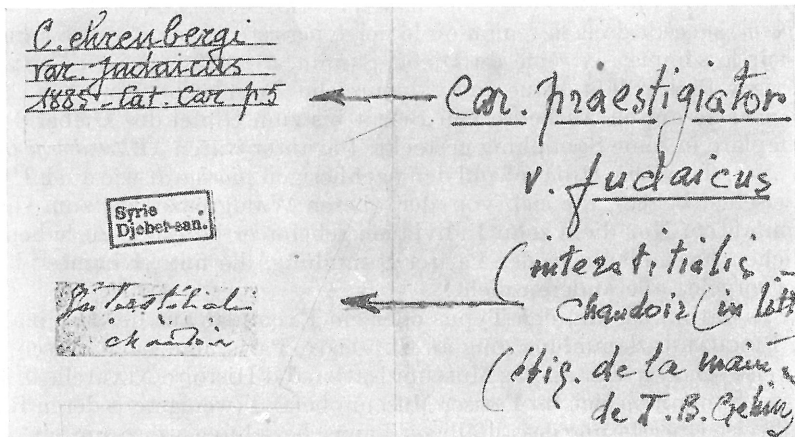 C. ehrenbergi
var. Judaicus
1885 - Cat. Car p. 5
Car. praestigiator
v. Judaicus
Syrie
Djebel-san.
(interstitialis
chaudoir (in litt
Interstitial
chaudoir
(étiq. de la main
de T. B. Gehin